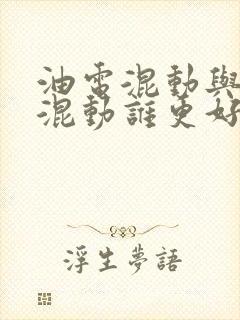 油電混動與
混動誰更好
浮生夢語